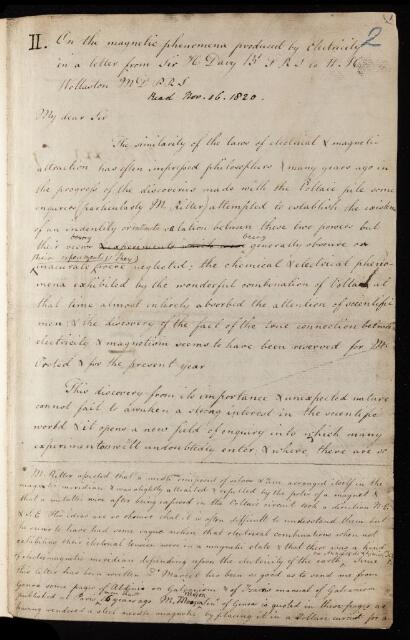 2
II. On the magnetic phenomena produced by Electricity
in a letter from Sir H. Davy Bt F R S to W. H.
Wollaston M D P R S
Read Nov. 16. 1820.
My dear Sir
The similarity of the laws of electrical & magnetic
attraction has often impressed philosophers & many years ago in
the progress of the discoveries made with the Voltaic pile some
enquirers (particularly M. Ritter) attempted to establish the existence
of an identity or intimate relation between these two powers but
their views being generally obscure or
their experiments
inaccurate were neglected: the chemical & electrical pheno-
mena exhibited by the wonderful combination of Volta at
that time almost entirely absorbed the attention of scientific
men: & the discovery of the fact of the true connection between
electricity & magnetism seems to have been reserved for M.
Orsted & for the present year
This discovery from its importance & unexpected nature
cannot fail to awaken a strong interest in the scientific
world & it opens a new field of enquiry into which many
experimenters will undoubtedly enter; & where there are so
M. Ritter asserted that a needle composed of silver & zinc arranged itself in the
magnetic meridian & was slightly attracted & repelled by the poles of a magnet &
that a metallic wire after being exposed in the Voltaic circuit took a direction N.E.
& S.E. His ideas are so obscure that it is often difficult to understand them but
he seems to have had some vague notion that electrical combinations when not
exhibiting their electrical tension were in a magnetic state & that there was a kind
of electromagnetic meridian depending upon the electricity of the earth. Since
this letter has been written Dr Marcet has been so good as to send me from
Genoa some pages of Aldini on Galvanism & of Izarn's manual of Galvanism
published at Paris more than 16 years ago M. Mojon of Genoa is quoted in these pages as
having rendered a steel needle magnetic by placing it in a Voltaic circuit for a